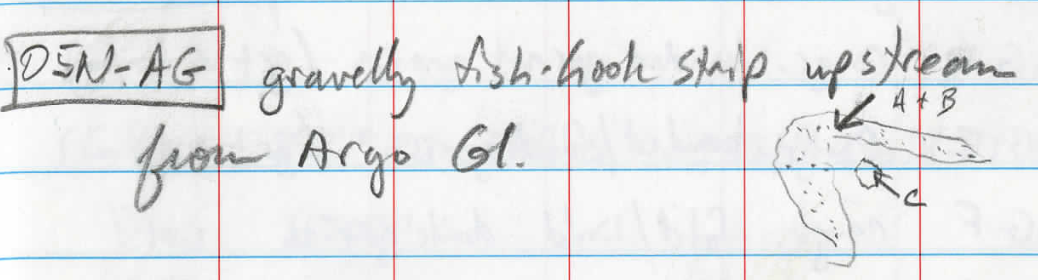 DEN-AG gravelly fish-hook strip upstream
from Argo Gl.
A + B
C